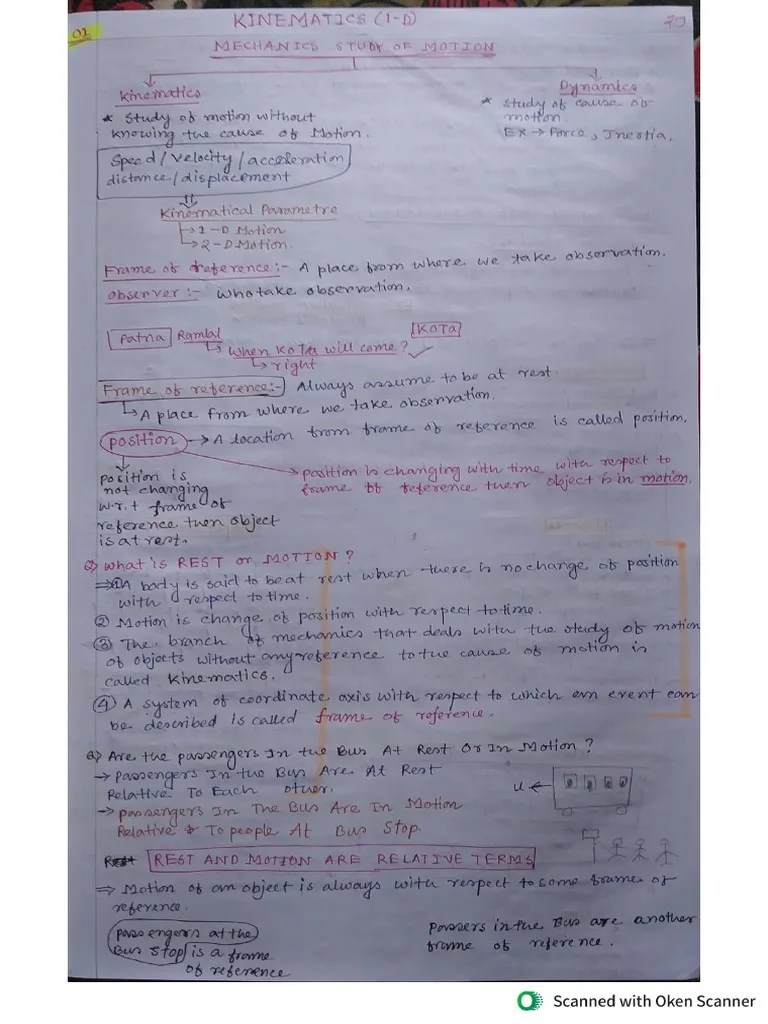 01
KINEMATICS (1-D)
MECHANICS STUDY OF MOTION
Kinematics
* Study of motion without
knowing the cause of Motion.
Speed/velocity/acceleration
distance/displacement
Kinematical Parametre
→ 1-D Motion
→ 2-D Motion.
Dynamics
* Study of cause of
motion.
Ex → Force, Inertia.
Frame of reference:- A place from where we take observation.
observer:- who take observation.
Patna Ramlal KOTA
→ When KOTA will come? ✓
→ right
Frame of reference:- Always assume to be at rest
→ A place from where we take observation.
position → A location from frame of reference is called position.
position is
not changing
w.r.t frame of
reference then object
is at rest.
→ position is changing with time with respect to
frame of reference then object is in motion.
Q) What is REST or MOTION?
⇒ ① A body is said to be at rest when there is no change of position
with respect to time.
② Motion is change of position with respect to time.
③ The branch of mechanics that deals with the study of motion
of objects without any reference to the cause of motion is
called Kinematics.
④ A system of coordinate axis with respect to which an event can
be described is called frame of reference.
Q) Are the passengers In the Bus At Rest Or In Motion?
→ Passengers In the Bus Are At Rest
Relative To Each other.
→ Passengers In The Bus Are In Motion
Relative To people At Bus Stop
u ←
REST AND MOTION ARE RELATIVE TERMS
⇒ Motion of an object is always with respect to some frame of
reference.
passengers at the
Bus Stop is a frame
of reference
Passers in the Bus are another
frame of reference.
Scanned with Oken Scanner